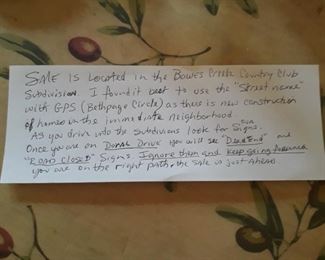 SALE is Located in the Bowes Creek Country Club
Subdivision. I found it best to use the "Street name"
with GPS (Bethpage Circle) as there is new construction
of homes in the immediate neighborhood.
As you drive into the subdivions look for Signs.
Once you are on Doral Drive you will see "Dead End" and
"ROAD Closed" Signs. Ignore them and keep going forward
you are on the right path, the sale is just Ahead